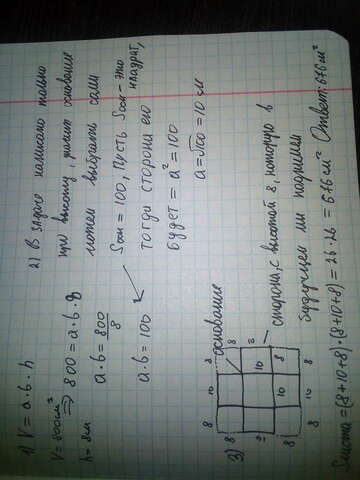 1) V = a·b·h
V = 800см³
h = 8см
=> 800 = a·b·8
a·b = 800/8
a·b = 100
2) В задаче написано только
про высоту, значит основание
можем выбрать сами
Sосн = 100, пусть Sосн - это
квадрат,
тогда сторона его
будет = a² = 100
a = √100 = 10 см
3)
основание
8 10 8
8
10
8
8
10
10
8
8 10 8
сторона, с высотой 8, которую в
будущем мы поднимем
Sлиста = (8+10+8)·(8+10+8) = 26·26 = 676 см²
Ответ: 676 см²